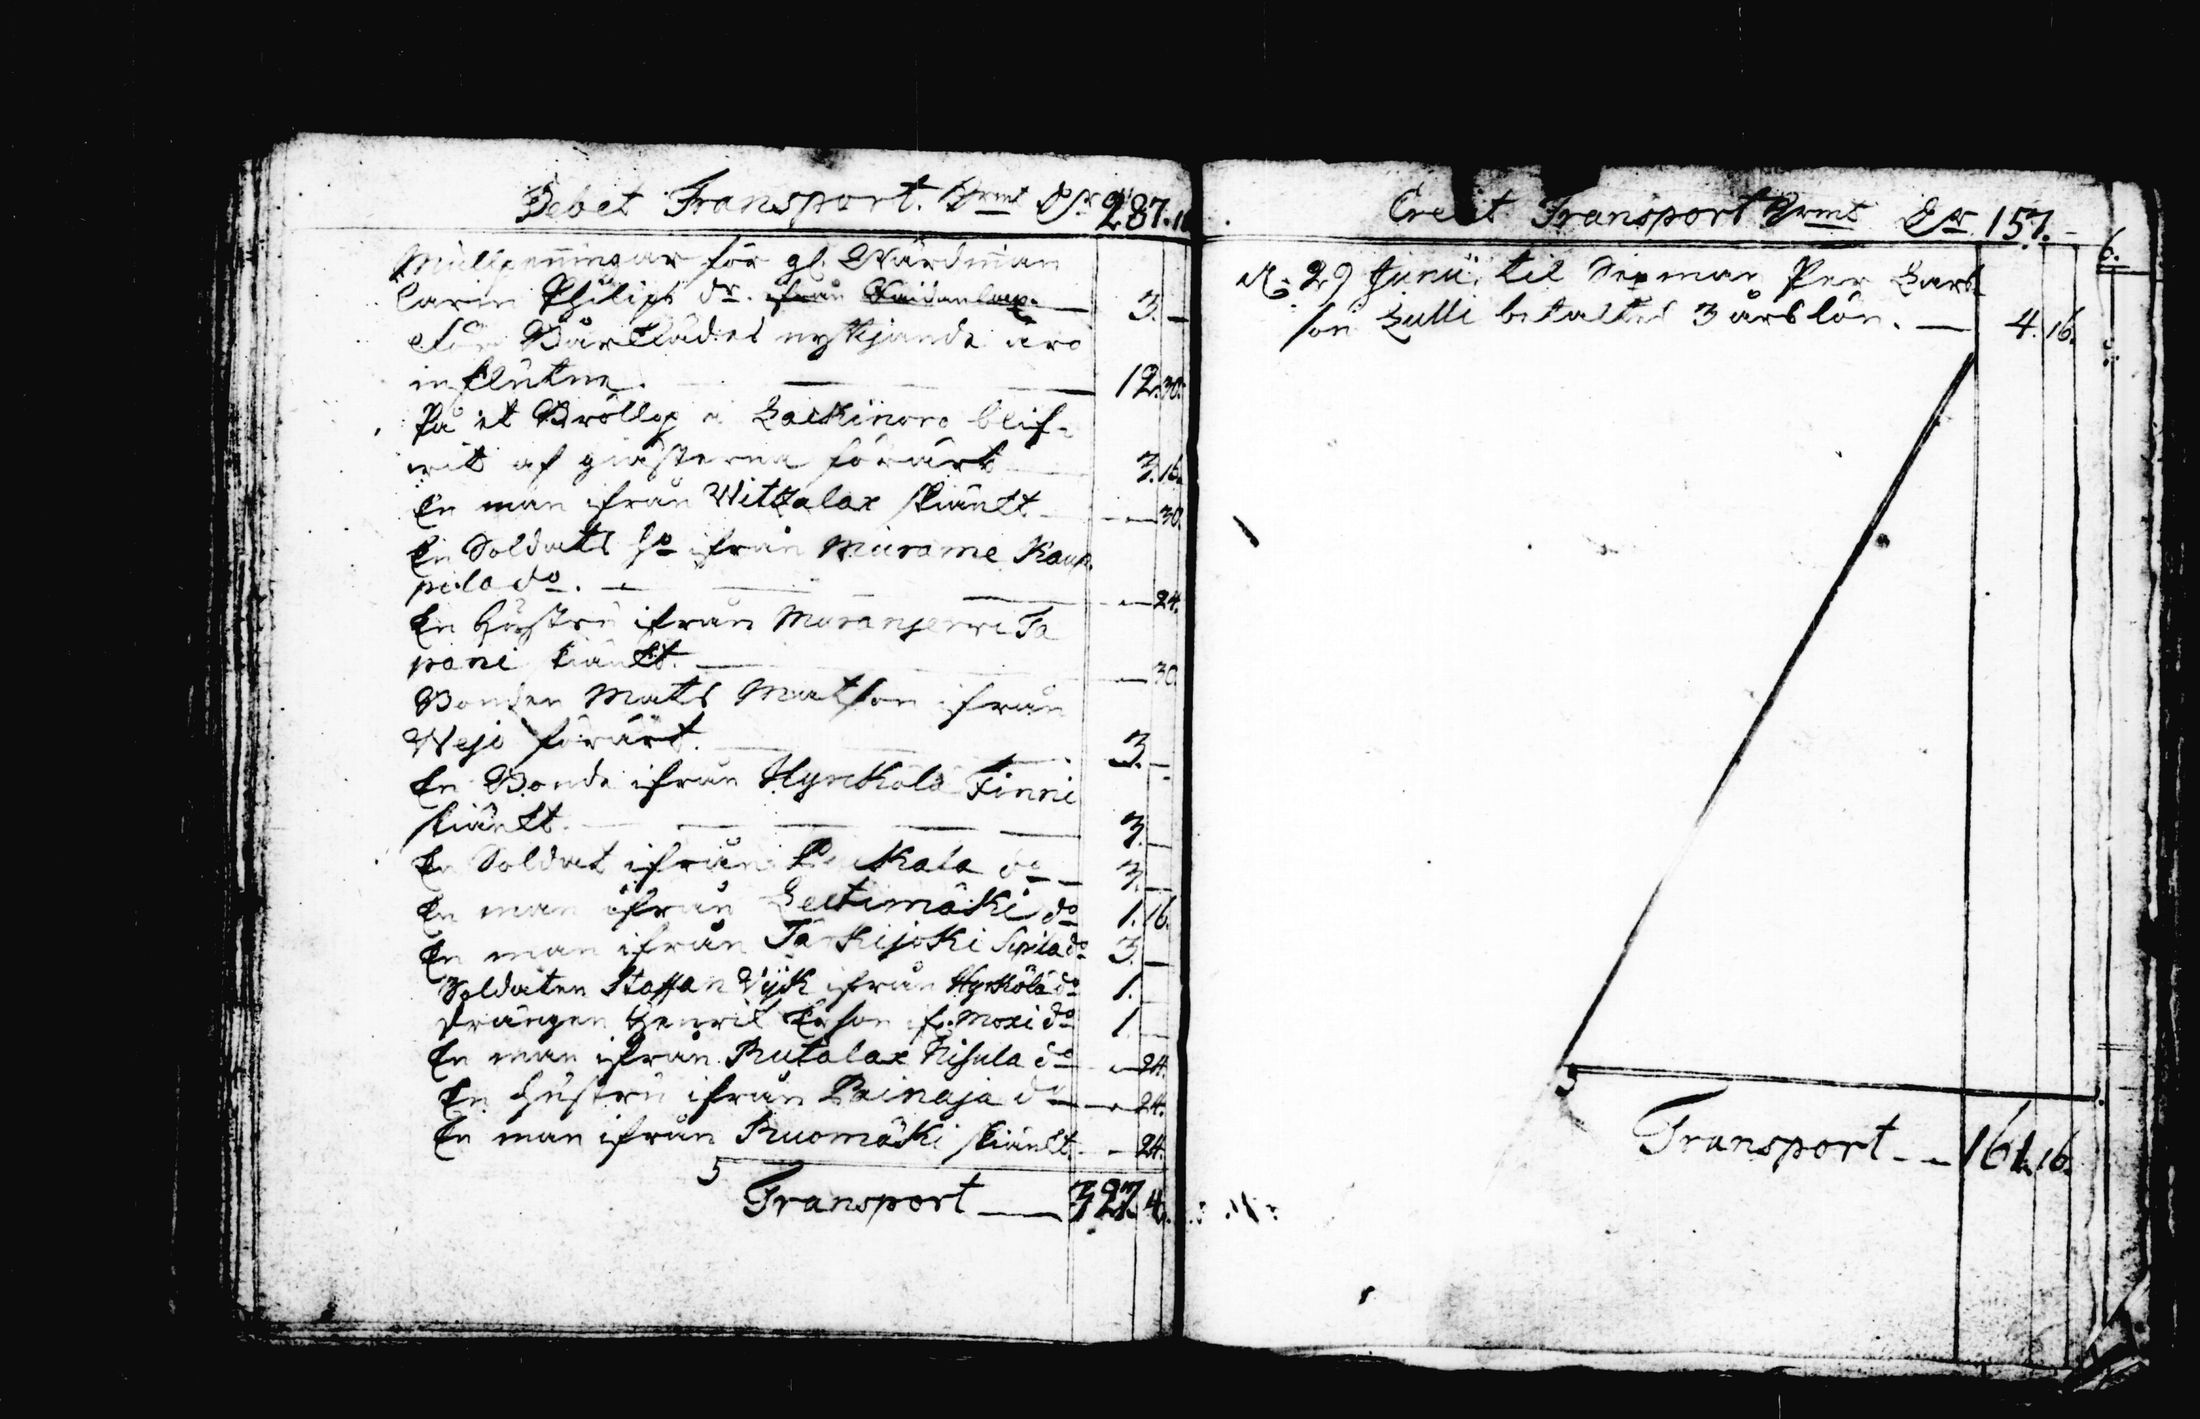 Debet Transport. Kmt Dr 287.16
Mullpenningar för gl. Wärdinnan
Carin Philips dr. ifrån Saidanlax 3. —
För Bårklädes nyttjande äro
influtne. — 12.30.
På et Bröllop i Lackinoro blif-
wit af giästerna förärt — 3.16.
En man ifrån Wittalax skiänkt — 30.
En Soldats Ho ifrån Murame Kaup-
pila do. — 24.
En Hustru ifrån Muranjerwi Ta
pani skiänkt. — 30.
Bonden Mats Matsson ifrån
Weji förärt. — 3. —
En Bonde ifrån Hyrckölä Finni
skiänkt. — 3. —
En Soldat ifrån do — 3. —
En man ifrån Lectimäki do 1.16.
En man ifrån Tarkijoki Sipila do 3. —
Soldaten Staffan Vijk ifrån Hyrkölä do 1. —
Drängen Henric Ersson if. Moxi do 1. —
En man ifrån Rutalax Nisula do — 24.
En Hustru ifrån Painaja do — 24.
En man ifrån Ruomäki skiänkt — 24.
5
Transport — 327. 4.
Credit Transport Kmt Dr 157. — 6.
d. 29 Junii til Sexman Per Lars-
son Lulli betaltes 3 årslön. — 4. 16.
5
Transport — 161. 16.